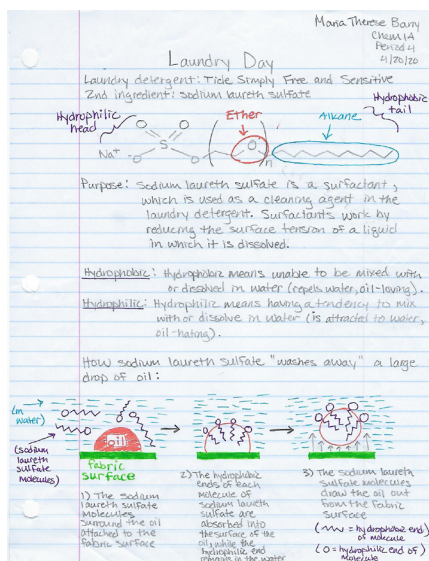 Maria Therese Barry
Chem 1A
Period 4
4/20/20
Laundry Day
Laundry detergent: Tide Simply Free and Sensitive
2nd ingredient: sodium laureth sulfate
Hydrophilic head
Ether
Alkane
Hydrophobic tail
Na+
-O
S
O
O
O
O
n
Purpose: Sodium laureth sulfate is a surfactant,
which is used as a cleaning agent in the
laundry detergent. Surfactants work by
reducing the surface tension of a liquid
in which it is dissolved.
Hydrophobic: Hydrophobic means unable to be mixed with
or dissolved in water (repels water, oil-loving).
Hydrophilic: Hydrophilic means having a tendency to mix
with or dissolve in water (is attracted to water,
oil-hating).
How sodium laureth sulfate "washes away" a large
drop of oil:
(in water)
(sodium
laureth
sulfate
molecules)
oil
fabric
surface
1) The sodium
laureth sulfate
molecules
surround the oil
attached to the
fabric surface
2) The hydrophobic
ends of each
molecule of
sodium laureth
sulfate are
absorbed into
the surface of the
oil, while the
hydrophilic end
remains in the water
3) The sodium laureth
sulfate molecules
draw the oil out
from the fabric
surface
( = hydrophobic end
of molecule
(O = hydrophilic end)
of molecule